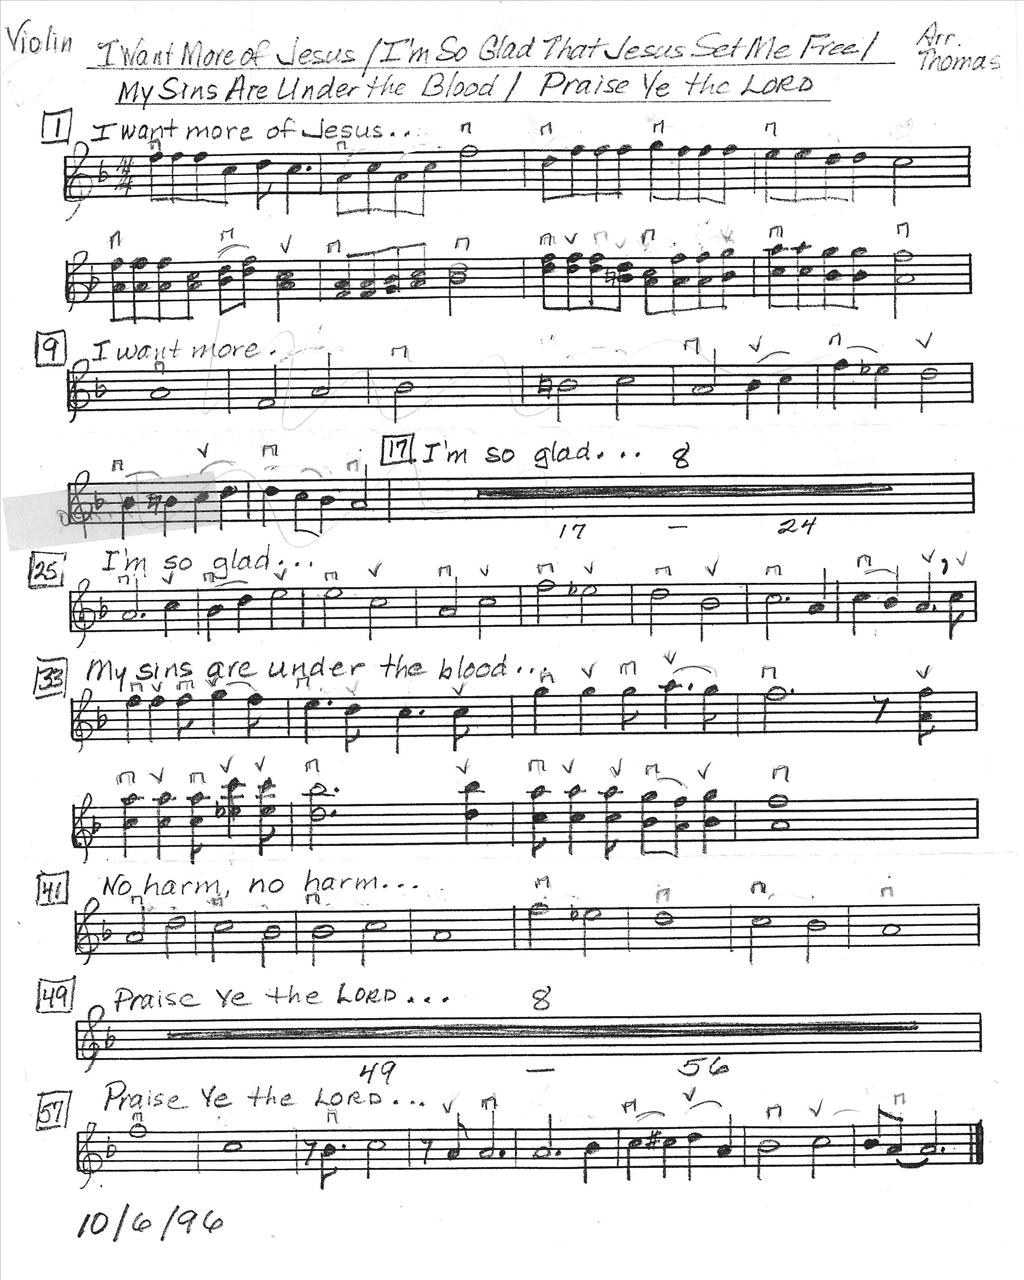 Violin
I Want More of Jesus / I'm So Glad That Jesus Set Me Free /
Arr. Thomas
My Sins Are Under the Blood / Praise Ye the LORD
1 I want more of Jesus..
4
4
9 I want more.
17 I'm so glad... 8
17 - 24
25 I'm so glad...
33 My sins are under the blood...
41 No harm, no harm...
49 Praise Ye the LORD... 8
49 - 56
57 Praise Ye the LORD...
10/6/96